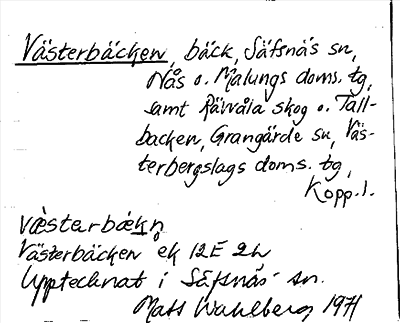 Västerbäcken, bäck, Säfsnäs sn,
Nås o. Malungs doms. tg,
samt Rävvåla skog o. Tall-
backen, Grangärde sn, Väs-
terbergslags doms. tg,
Kopp. l.
væ̀starbækn̥
Västerbäcken ek 12E 2h
Upptecknat i Säfsnäs sn.
Mats Wahlberg 1971